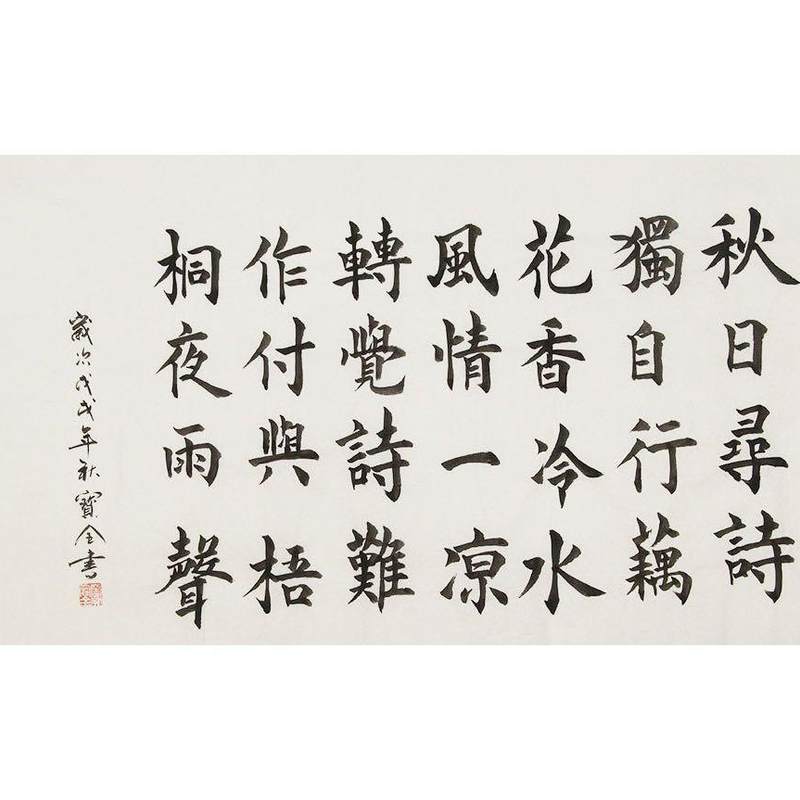 秋日尋詩
獨自行藕
花香冷水
風情一凉
轉覺詩難
作付與梧
桐夜雨聲
歲次戊戌年秋寶全書